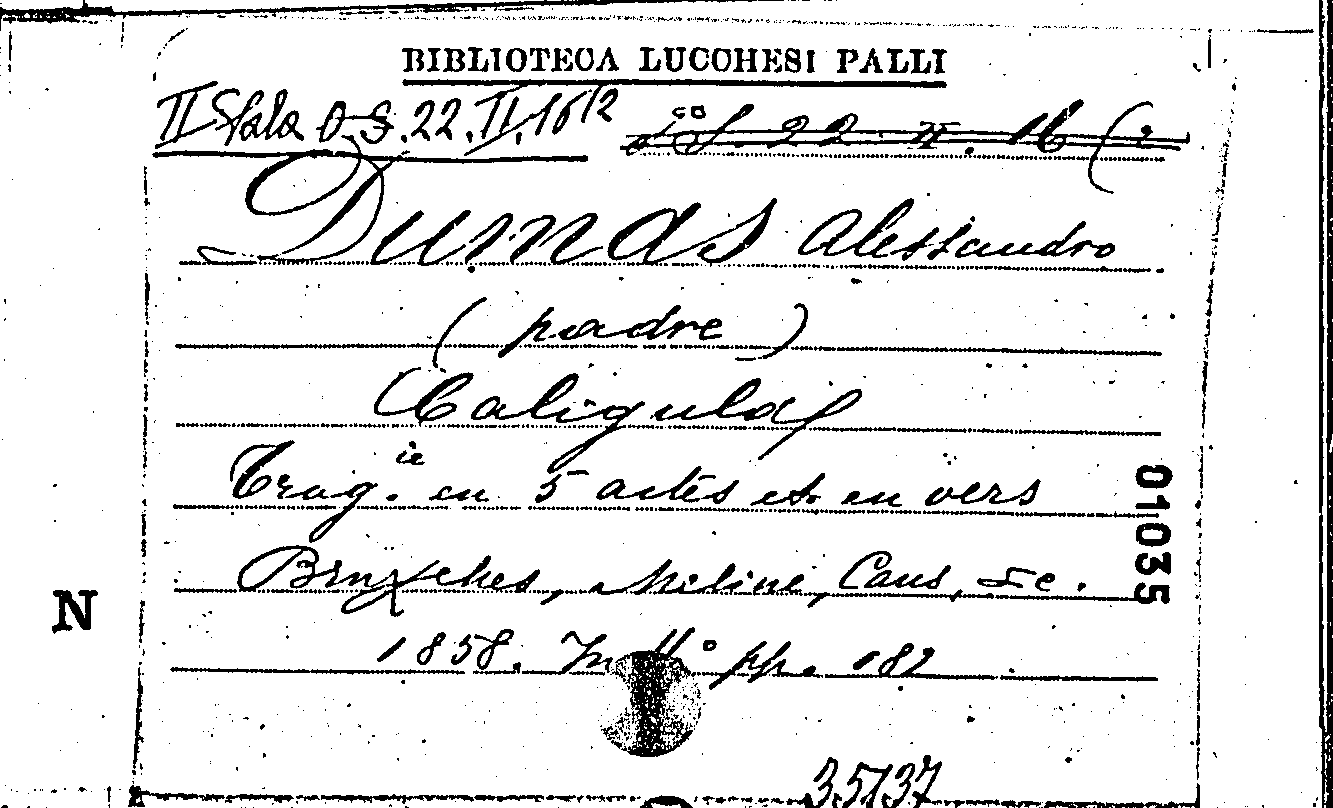 BIBLIOTECA LUCCHESI PALLI
II Sala O.S.22.II.16/2
S. 22. II. 16 (2
Dumas Alessandro
(padre)
Caligula
Trag.ie en 5 actes et en vers
Bruxelles, Meline, Cans, & C.
1858. In pp. 182
01035
N
35137